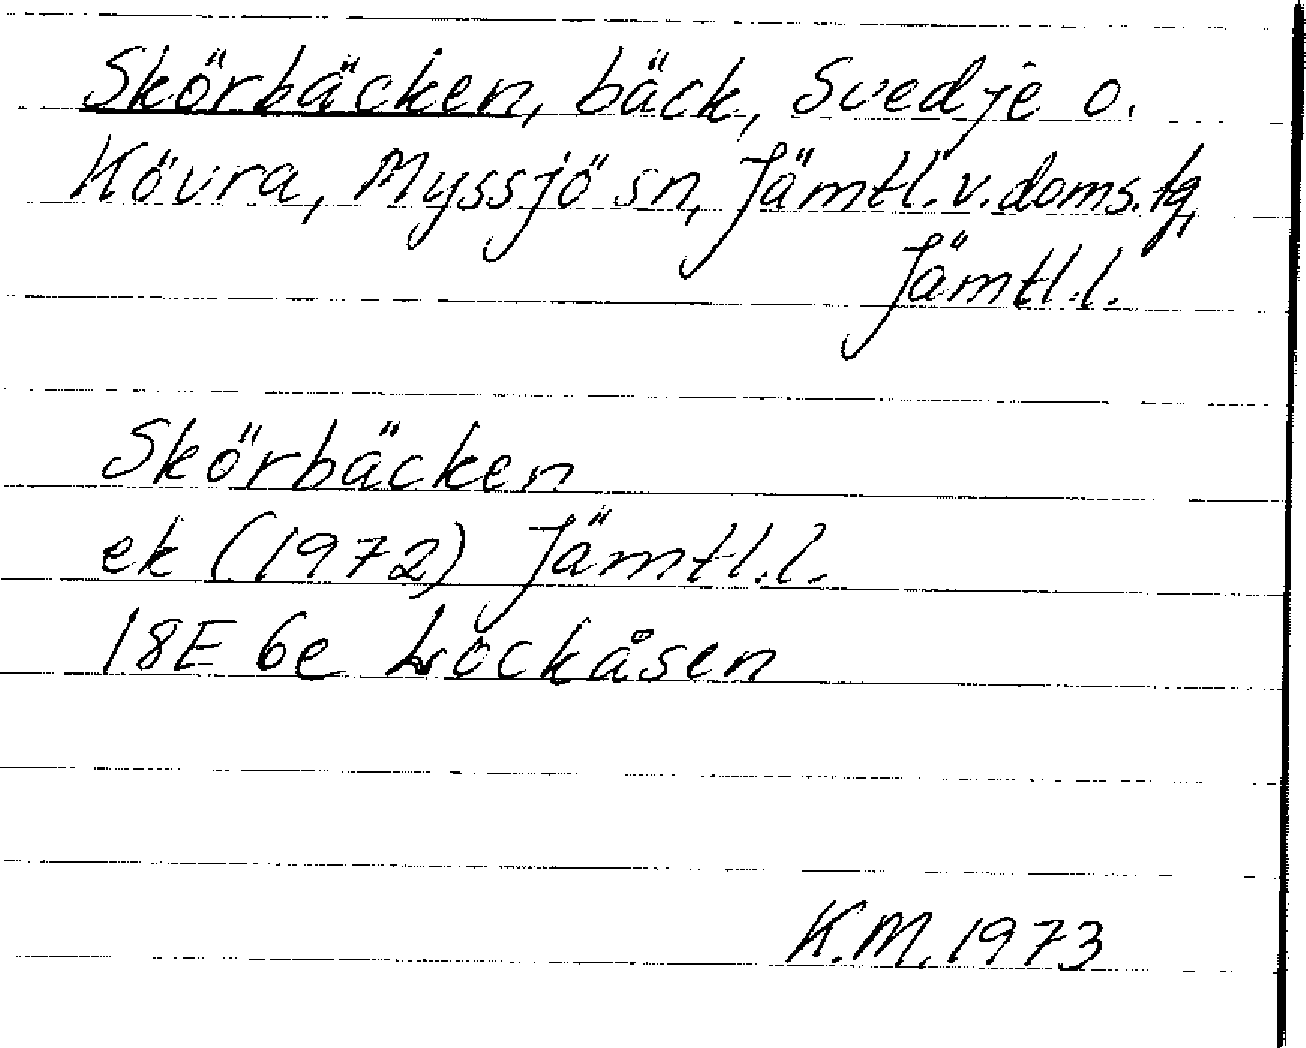 Skörbäcken, bäck, Svedje o.
Kövra, Myssjö sn, Jämtl.v.doms.tg,
Jämtl.l.
Skörbäcken
ek (1972) Jämtl.l.
18E 6e Lockåsen
K.M.1973